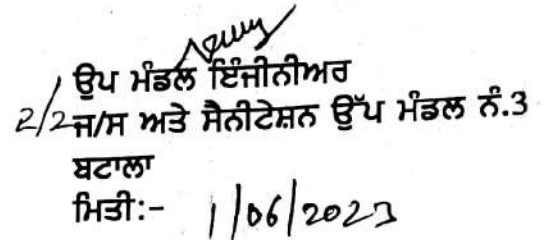 ਉਪ ਮੰਡਲ ਇੰਜੀਨੀਅਰ
2/2 ਜ/ਸ ਅਤੇ ਸੈਨੀਟੇਸ਼ਨ ਉੱਪ ਮੰਡਲ ਨੰ.3
ਬਟਾਲਾ
ਮਿਤੀ:- 1/06/2023